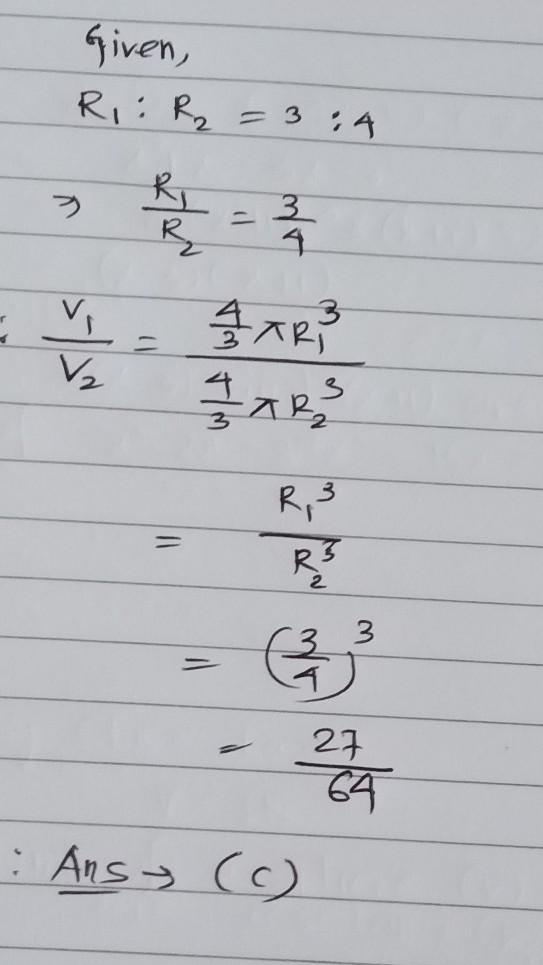 Given,
R₁ : R₂ = 3 : 4
⇒ R₁/R₂ = 3/4
: V₁/V₂ = (4/3 πR₁³)/(4/3 πR₂³)
= R₁³/R₂³
= (3/4)³
= 27/64
: Ans → (C)